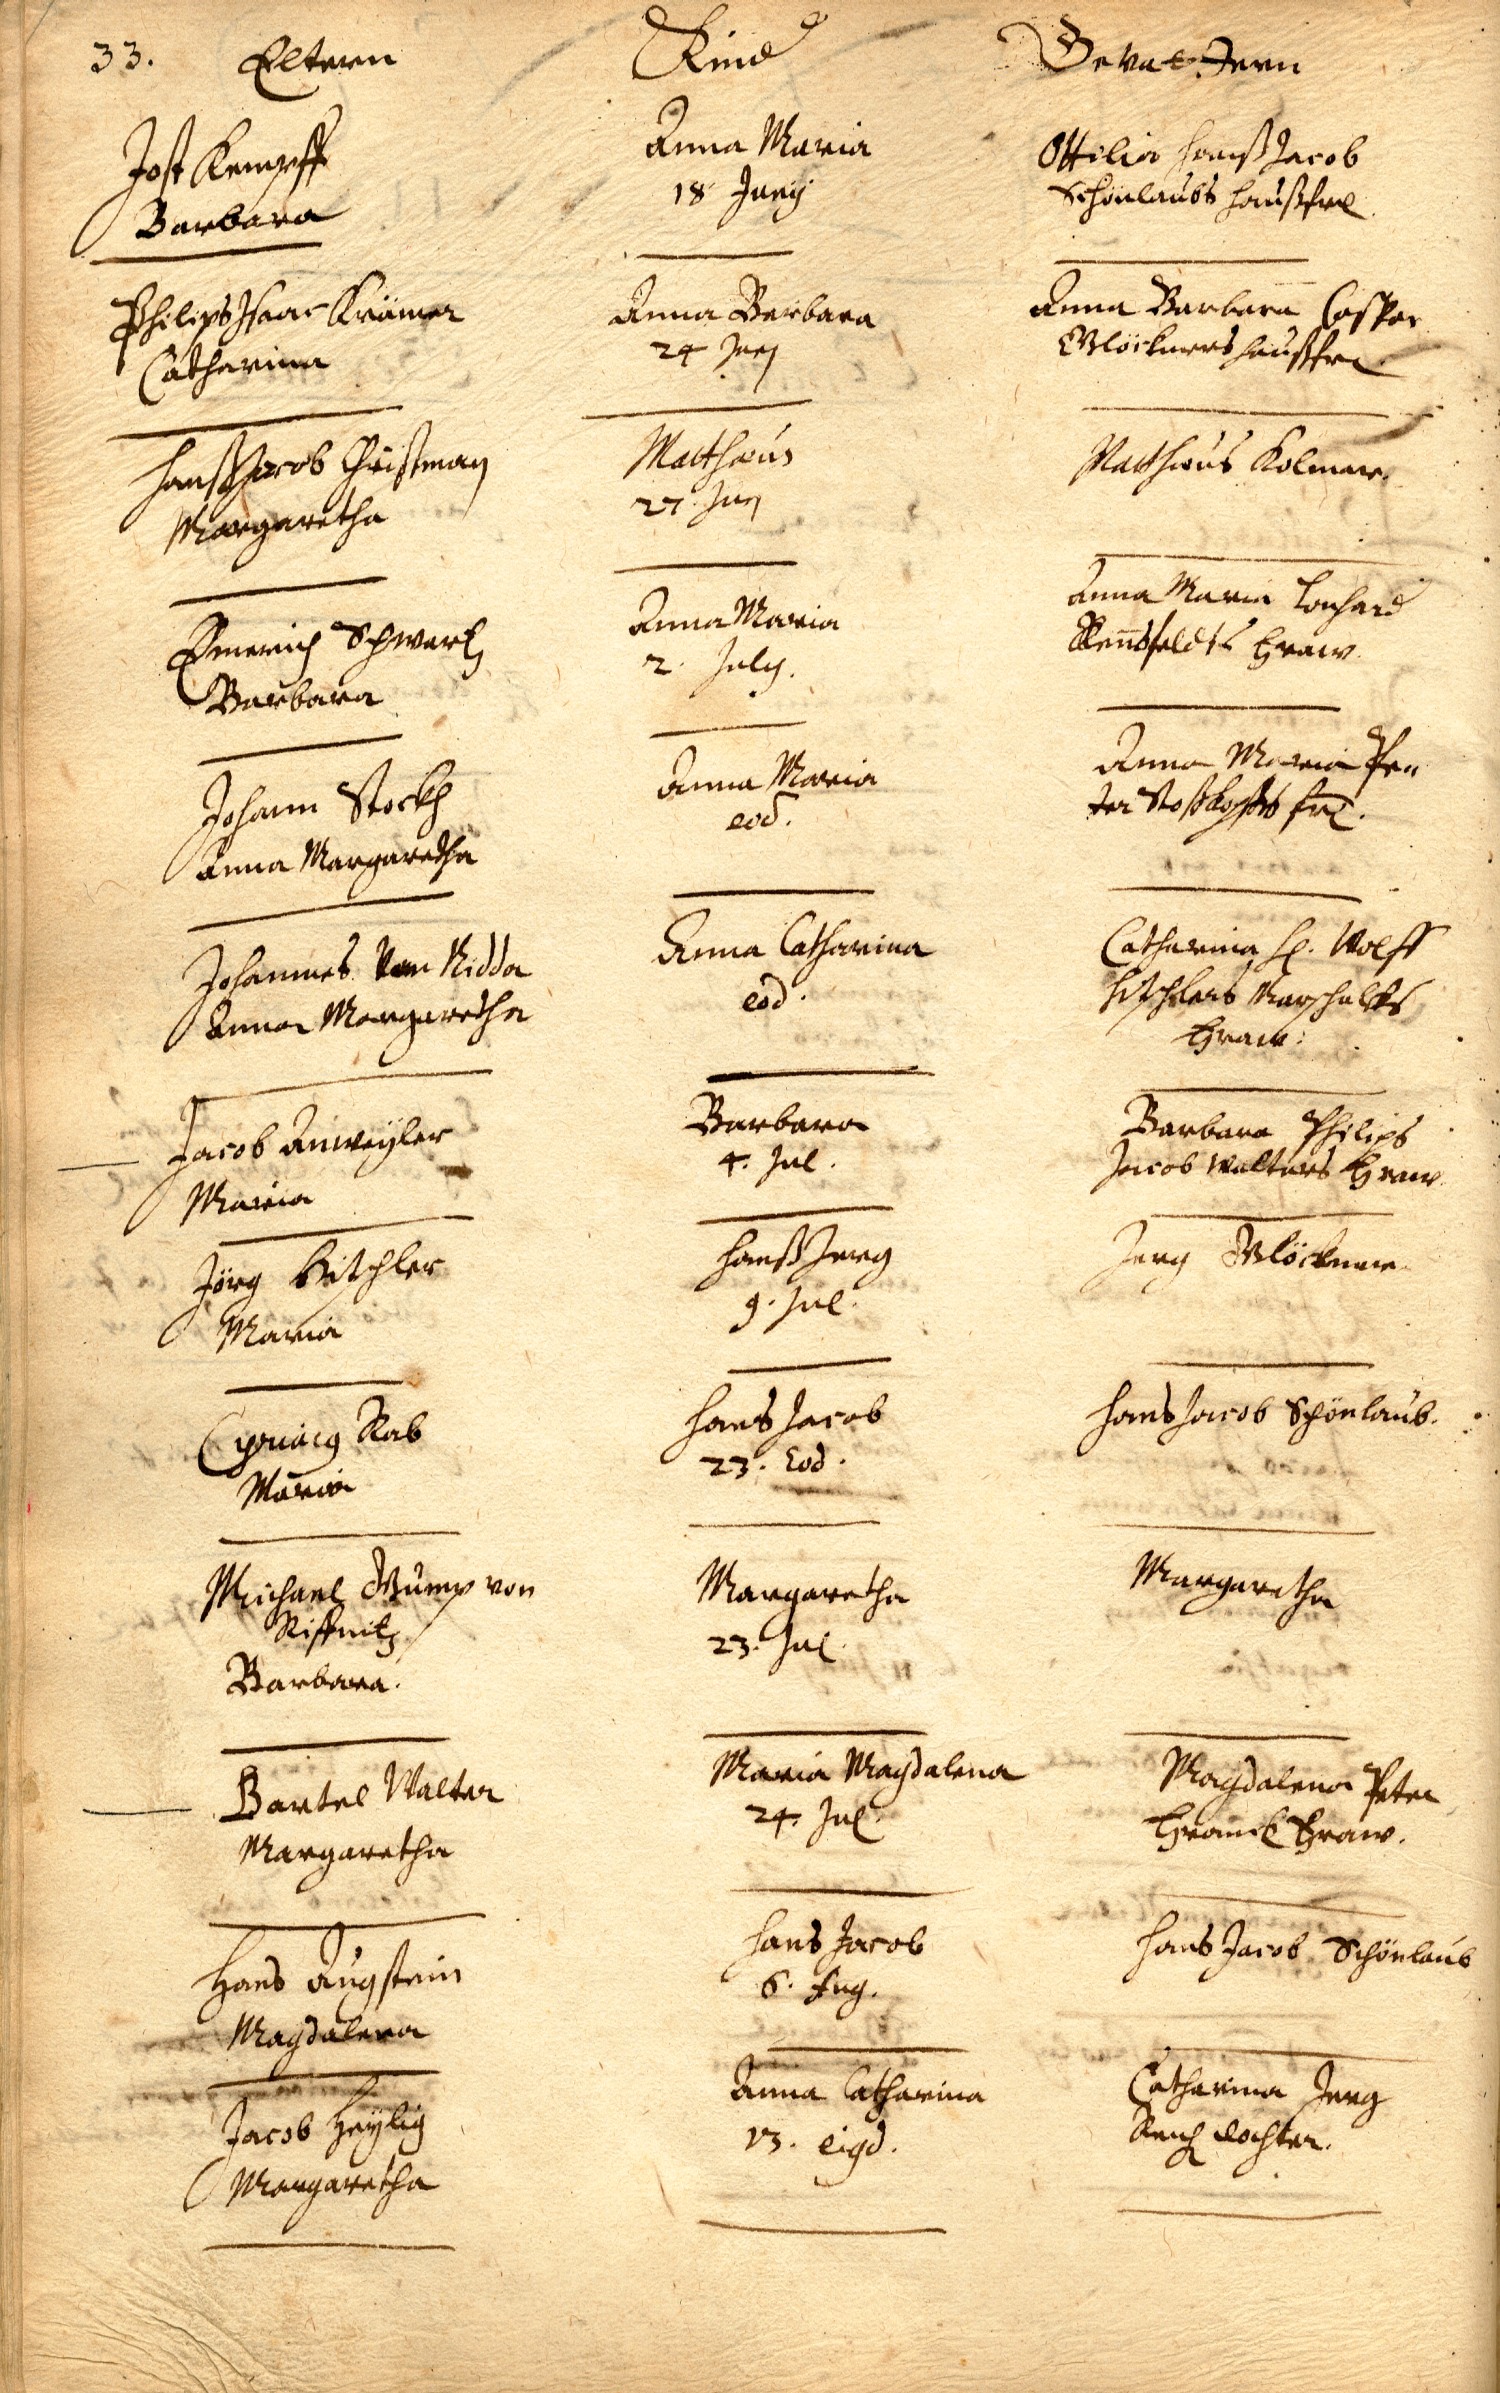 33. Eltern Kind Gevattern
Jost Kempff
Barbara
Anna Maria
18 Junij
Ottilia Hanß Jacob
Schönlaubs Haußfrl
Philips Isaac Krämer
Catharina
Anna Barbara
24 Junj
Anna Barbara Casper
Glöckners Haußfrl
Hanß Jacob Christman
Margaretha
Matthæus
27. Junj
Matthæus Kolmar.
Emerich Schwartz
Barbara
Anna Maria
2. July.
Anna Maria Lenhard
Fraw
Johann Stockh
Anna Margaretha
Anna Maria
eod.
Anna Maria Pe
ter frl.
Johannes Von Nidda
Anna Margaretha
Anna Catharina
eod.
Catharina H. Wolff
Hitschlers Marschalks
Fraw.
Jacob Anweyler
Maria
Barbara
4. Jul.
Barbara Philips
Jacob Walters Fraw
Jörg Hitschler
Maria
Hanß Jerg
9. Jul.
Jerg Glöckner
Cyriacus Rab
Maria
Hans Jacob
23. Eod.
Hans Jacob Schönlaub.
Michael Gump von
Barbara.
Margaretha
23. Jul.
Margaretha
Bartel Walter
Margaretha
Maria Magdalena
24. Jul.
Magdalena Peter
Franck Fraw.
Hans Augstein
Magdalena
Hans Jacob
6. Aug.
Hans Jacob Schönlaub
Jacob Heylig
Margaretha
Anna Catharina
13. eigd.
Catharina Jerg
Reich dochter.